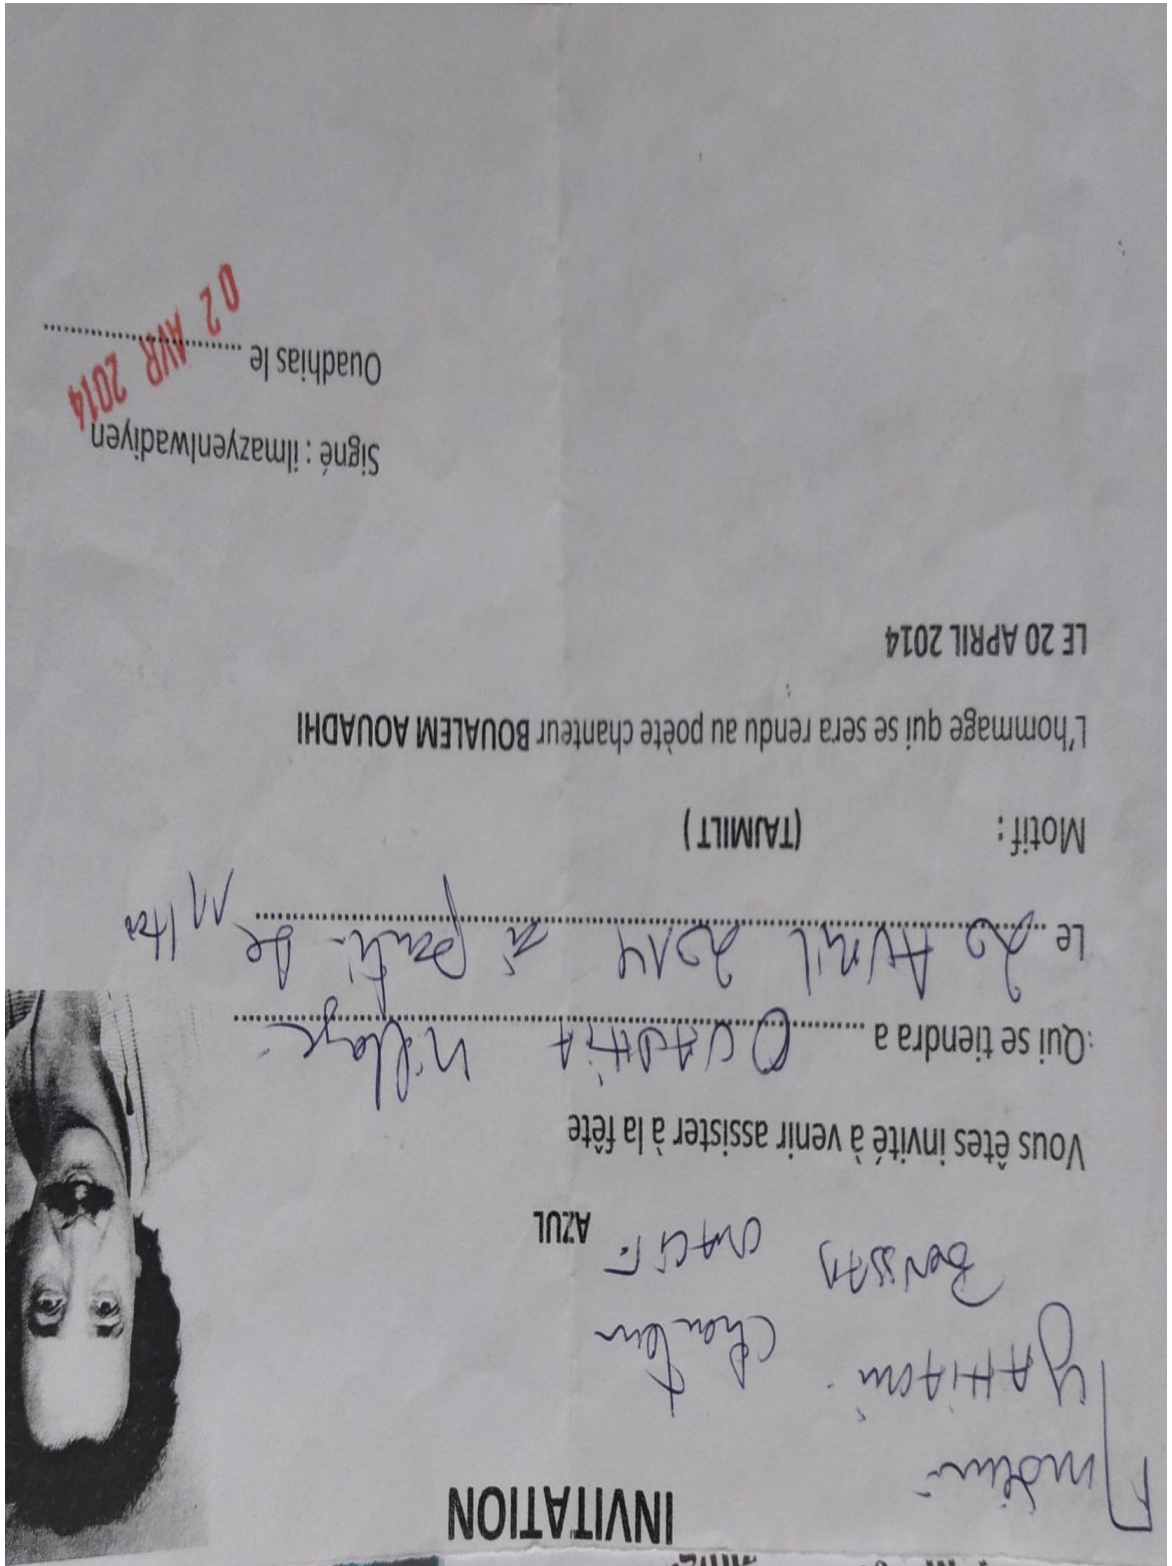 INVITATION
chanteur
AZUL
Vous êtes invité à venir assister à la fête
:Qui se tiendra a OUADHIA village
Le 20 Avril 2014 à parti de 11h00
Motif : (TAJMILT )
L'hommage qui se sera rendu au poète chanteur BOUALEM AOUADHI
LE 20 APRIL 2014
Signé : ilmazyenlwadiyen
Ouadhias le 02 AVR 2014